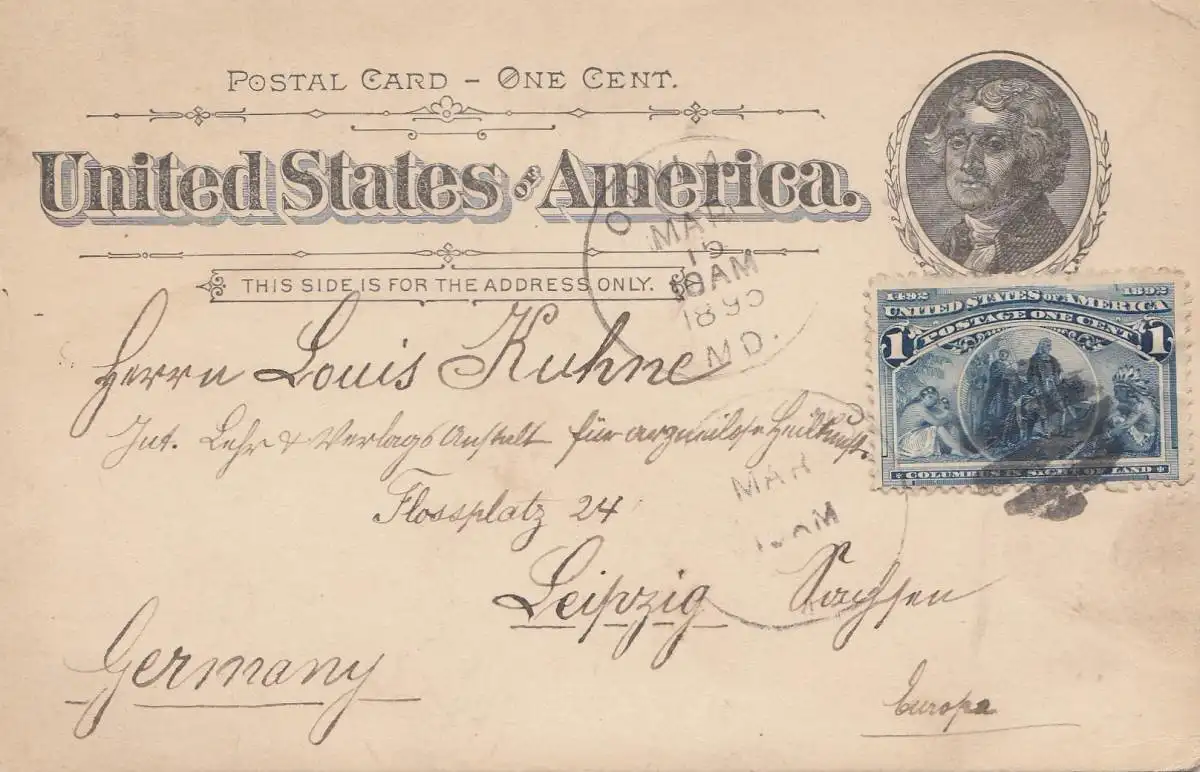 POSTAL CARD - ONE CENT.
United States of America.
THIS SIDE IS FOR THE ADDRESS ONLY.
MAR
15
10AM
MD.
1492 1892
UNITED STATES OF AMERICA
POSTAGE ONE CENT
1 1
COLUMBUS IN SIGHT OF LAND
Herrn Louis Kuhne
Int. Lehr & Verlags Anstalt für arzneilose Heilkunst.
MAR
AM
Flossplatz 24
Leipzig Sachsen
Germany
Europa